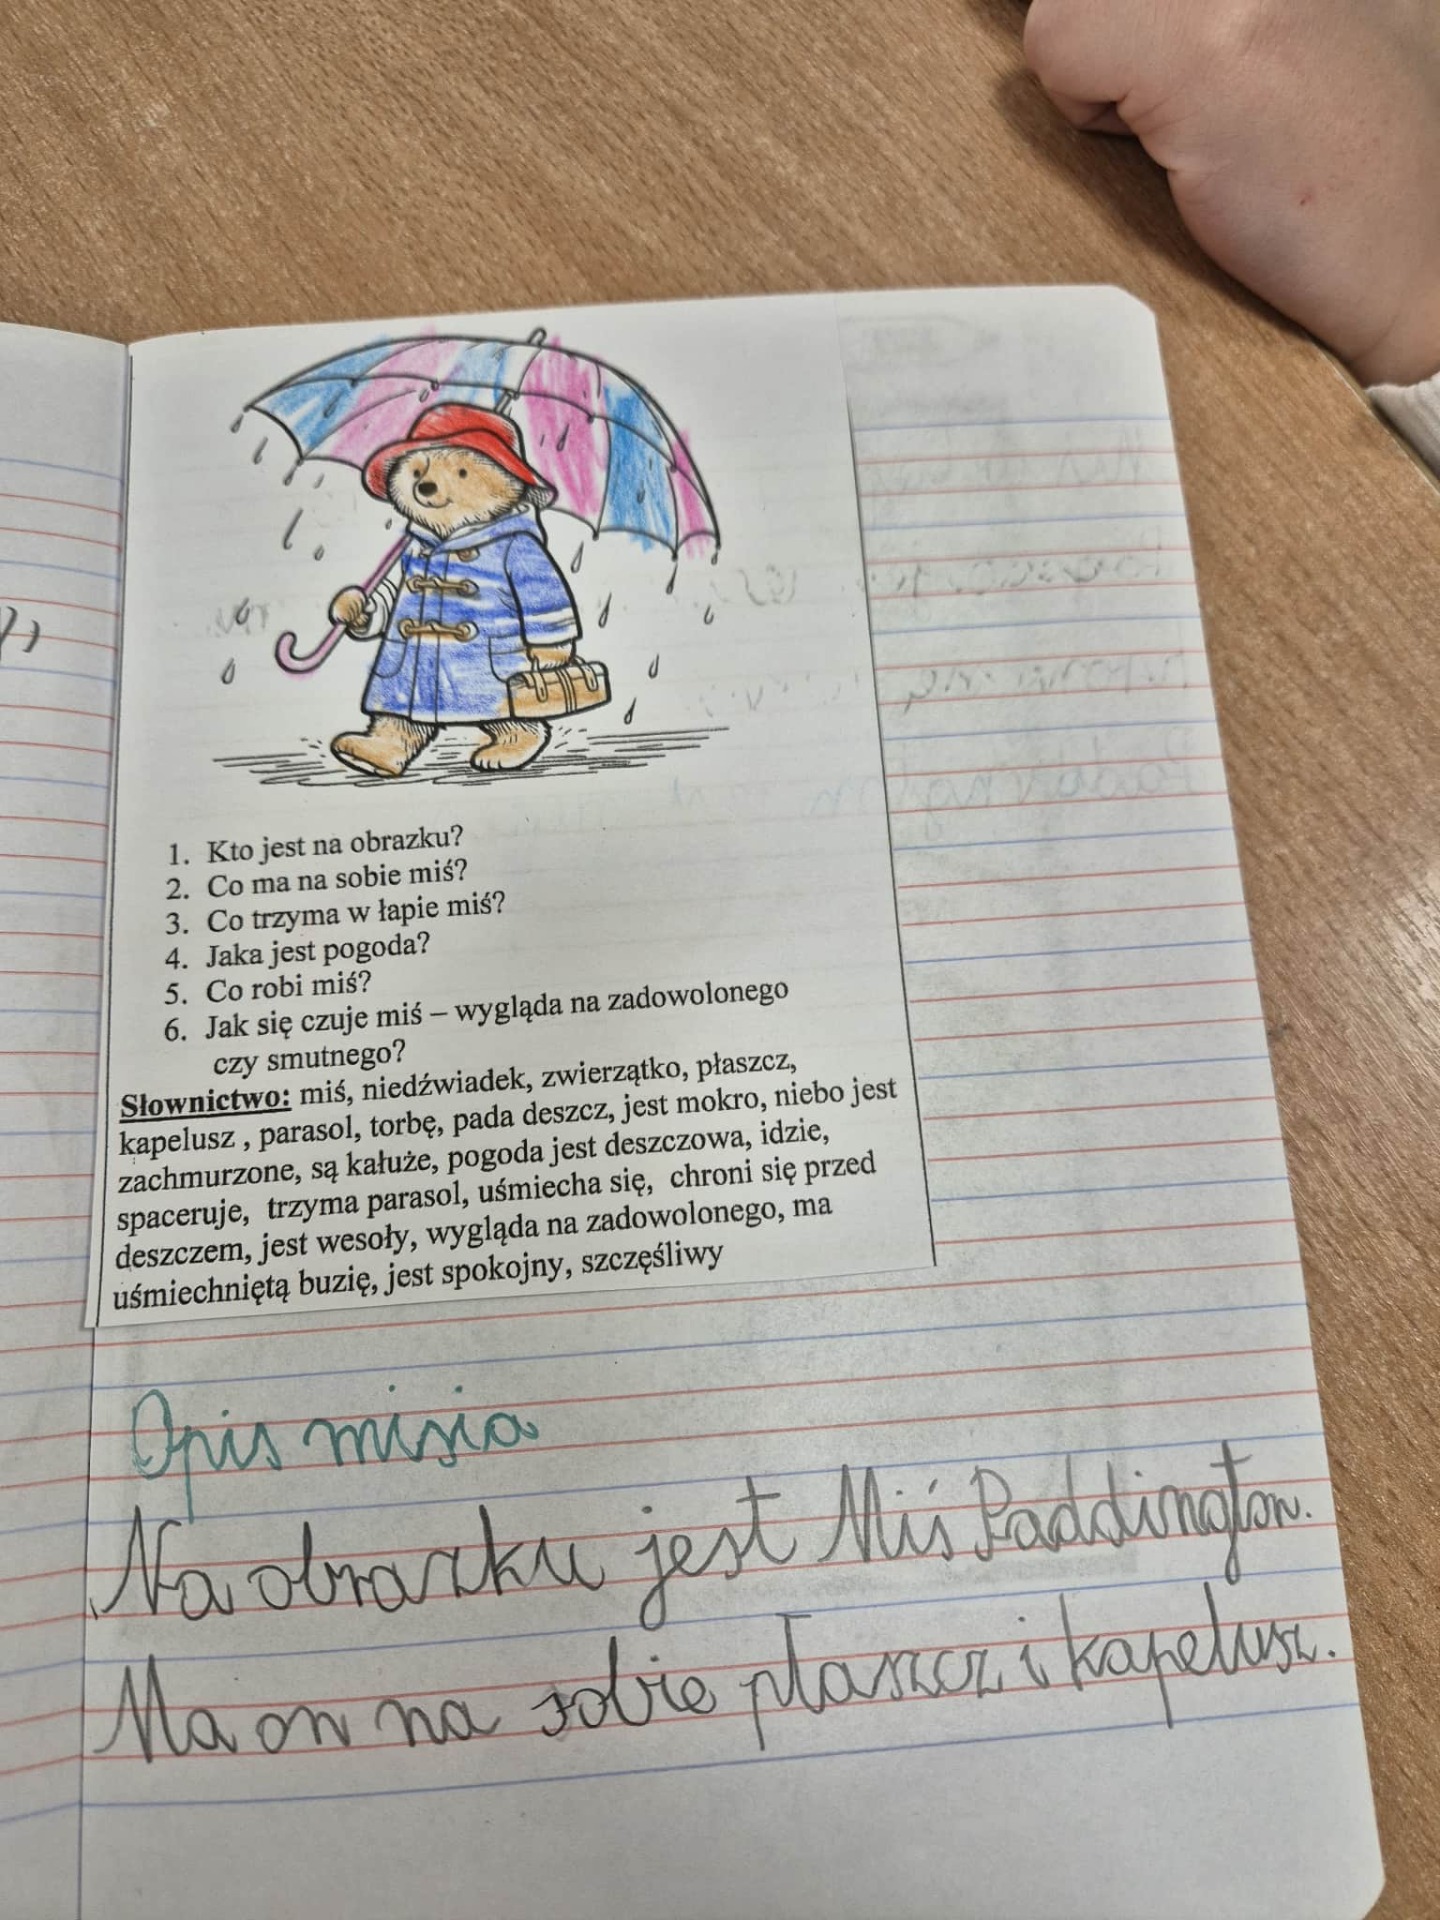 1. Kto jest na obrazku?
2. Co ma na sobie miś?
3. Co trzyma w łapie miś?
4. Jaka jest pogoda?
5. Co robi miś?
6. Jak się czuje miś – wygląda na zadowolonego
czy smutnego?
Słownictwo: miś, niedźwiadek, zwierzątko, płaszcz,
kapelusz , parasol, torbę, pada deszcz, jest mokro, niebo jest
zachmurzone, są kałuże, pogoda jest deszczowa, idzie,
spaceruje, trzyma parasol, uśmiecha się, chroni się przed
deszczem, jest wesoły, wygląda na zadowolonego, ma
uśmiechniętą buzię, jest spokojny, szczęśliwy
Opis misia
Na obrazku jest Miś Paddington.
Ma on na sobie płaszcz i kapelusz.